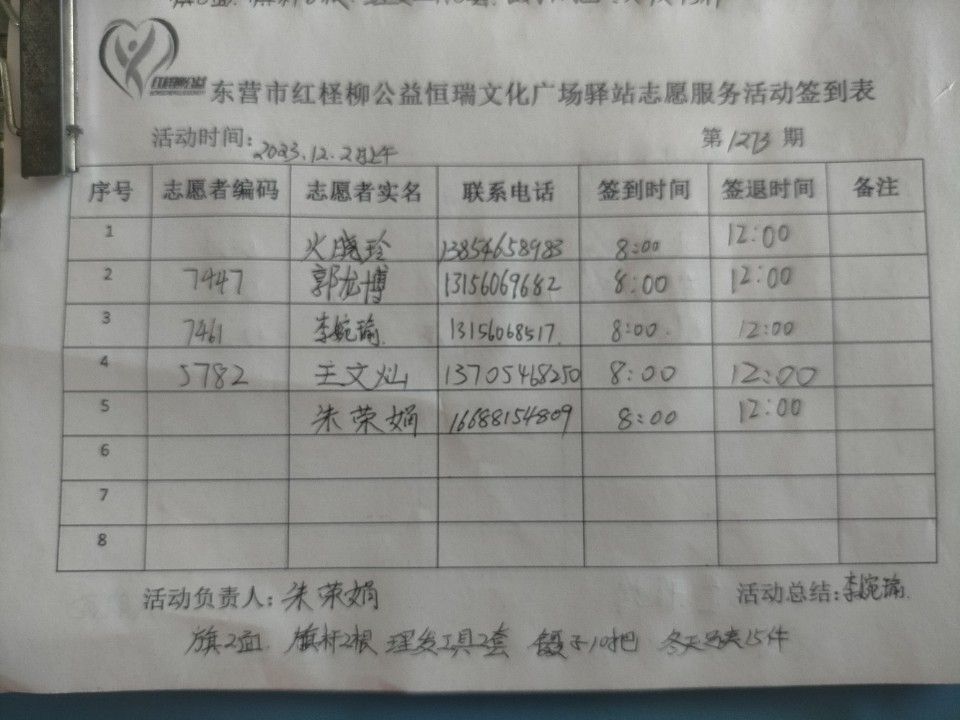 东营市红柽柳公益恒瑞文化广场驿站志愿服务活动签到表
活动时间: 2023.12.2日上午 第1273期
序号 志愿者编码 志愿者实名 联系电话 签到时间 签退时间 备注
1 火晓珍 13854658983 8:00 12:00
2 7447 郭龙博 13156069682 8:00 12:00
3 7461 李婉瑜 13156068517 8:00 12:00
4 5782 王文灿 13705468250 8:00 12:00
5 朱荣娟 16688154809 8:00 12:00
6
7
8
活动负责人: 朱荣娟 活动总结: 李婉瑜
旗2面 旗杆2根 理发工具2套 镊子10把 冬天马夹15件